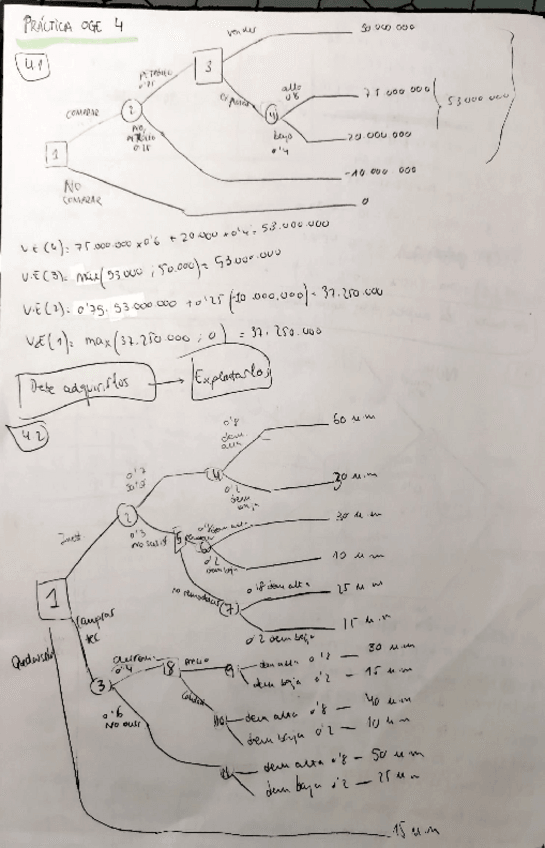 PRÁCTICA OGE 4
4.1
vender
50 000 000
PETRÓLEO
0'75
3
explotar
alto
0'8
75 000 000
53 000 000
COMPRAR
2
4
bajo
0'4
20 000 000
NO
PETRÓLEO
0'25
-10 000 000
1
NO
COMPRAR
0
V.E(4)= 75.000.000 x 0'6 + 20.000 x 0'4 = 53.000.000
V.E(3)= máx(53.000 ; 50.000) = 53.000.000
V.E(2)= 0'75. 53.000.000 + 0'25 (-10.000.000) = 37.250.000
V.E(1)= max(37.250.000 ; 0) = 37.250.000
Debe adquirirlos
Explotarlos
4.2
0'8
dem
alta
60 u.m
0'7
4
0'2
dem
baja
30 u.m
2
0'3
No
5
6
0'8 dem alta
30 u.m
0'2
dem baja
10 u.m
no
7
0'8 dem alta
25 u.m
0'2 dem baja
15 u.m
1
Comprar
tec
Quedarse
3
0'4
8
9
dem alta 0'8 — 30 u.m
dem baja 0'2 — 15 u.m
10
dem alta 0'8 — 40 u.m
dem baja 0'2 — 10 u.m
0'6
No
11
dem alta 0'8 — 50 u.m
dem baja 0'2 — 25 u.m
15 u.m